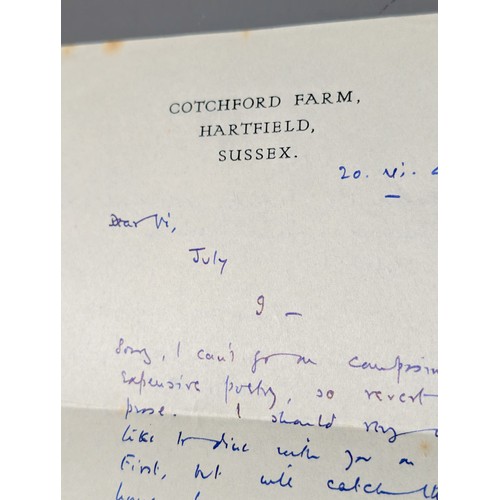 COTCHFORD FARM,
HARTFIELD,
SUSSEX.
20. vi.
Dear Vi,
July
9 —
Sorry, I can't go on
expensive poetry, so revert
prose. I should very
like to dine with you on
First, but will catch